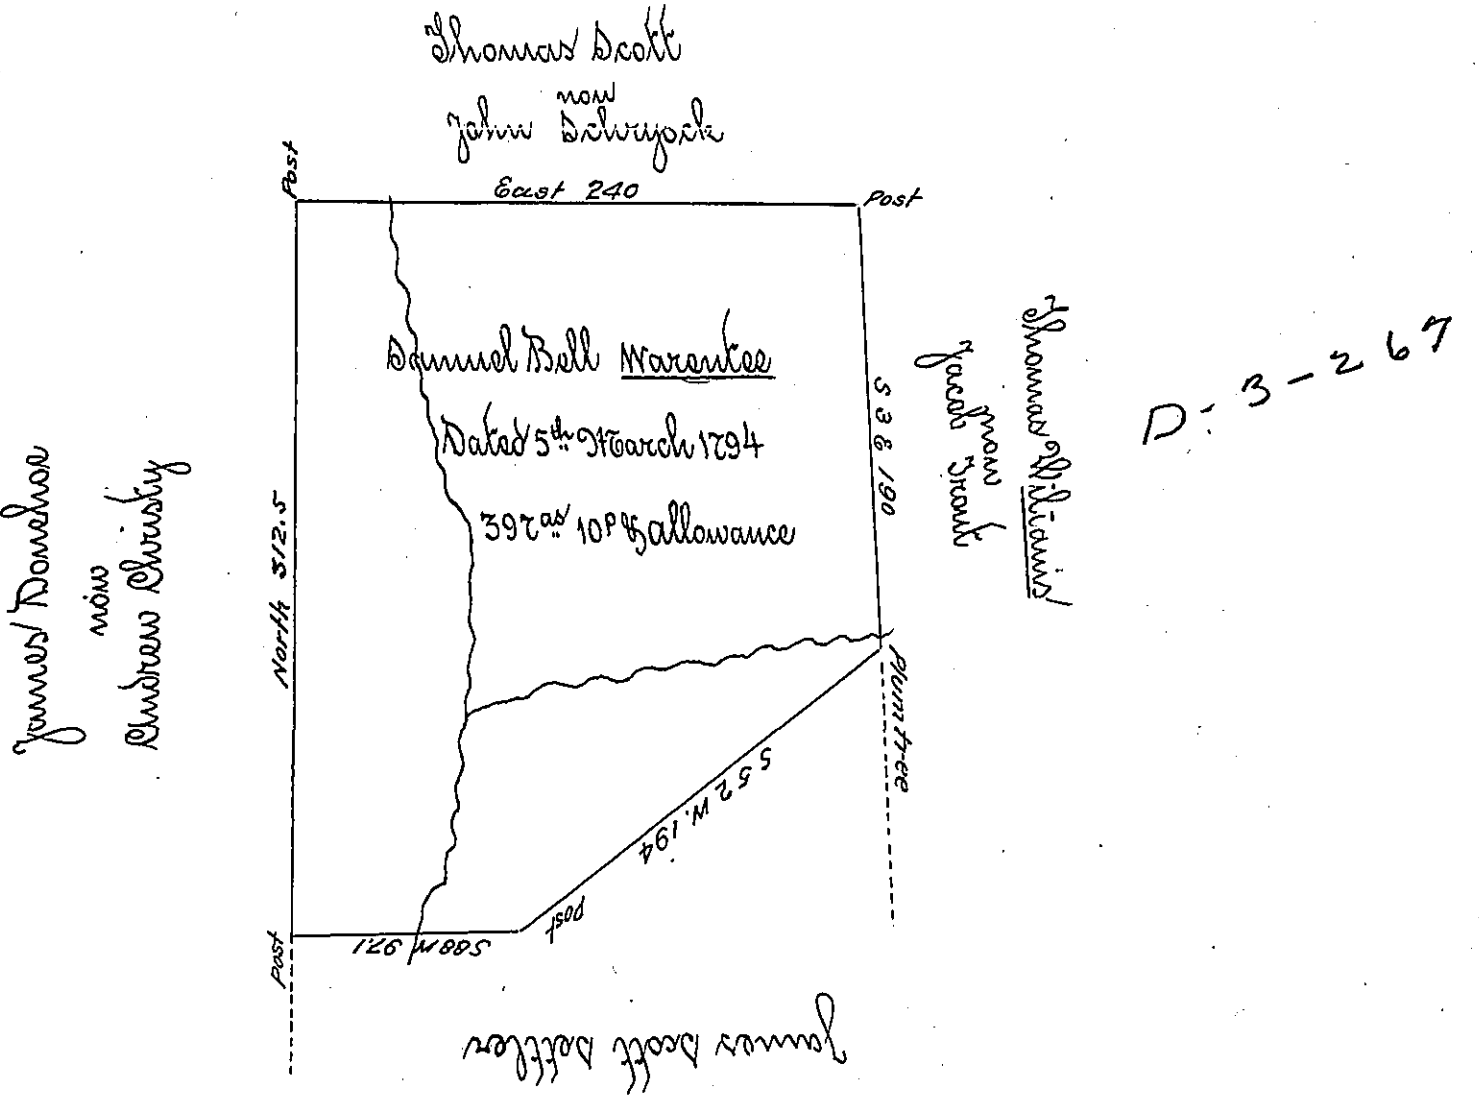 Thomas Scott
now
John Schryock
Post
East 240
Post
Samuel Bell Warentee
Dated 5th March 1794
397as 10p & allowance
S 3 E 190
Thomas Williams
now
Jacob Trout
D: 3-267
James Donehoe
now
Andrew Christy
North 312.5
Plum tree
S 52 W. 194
post
S 88 W 97.1
Post
James Scott Settler